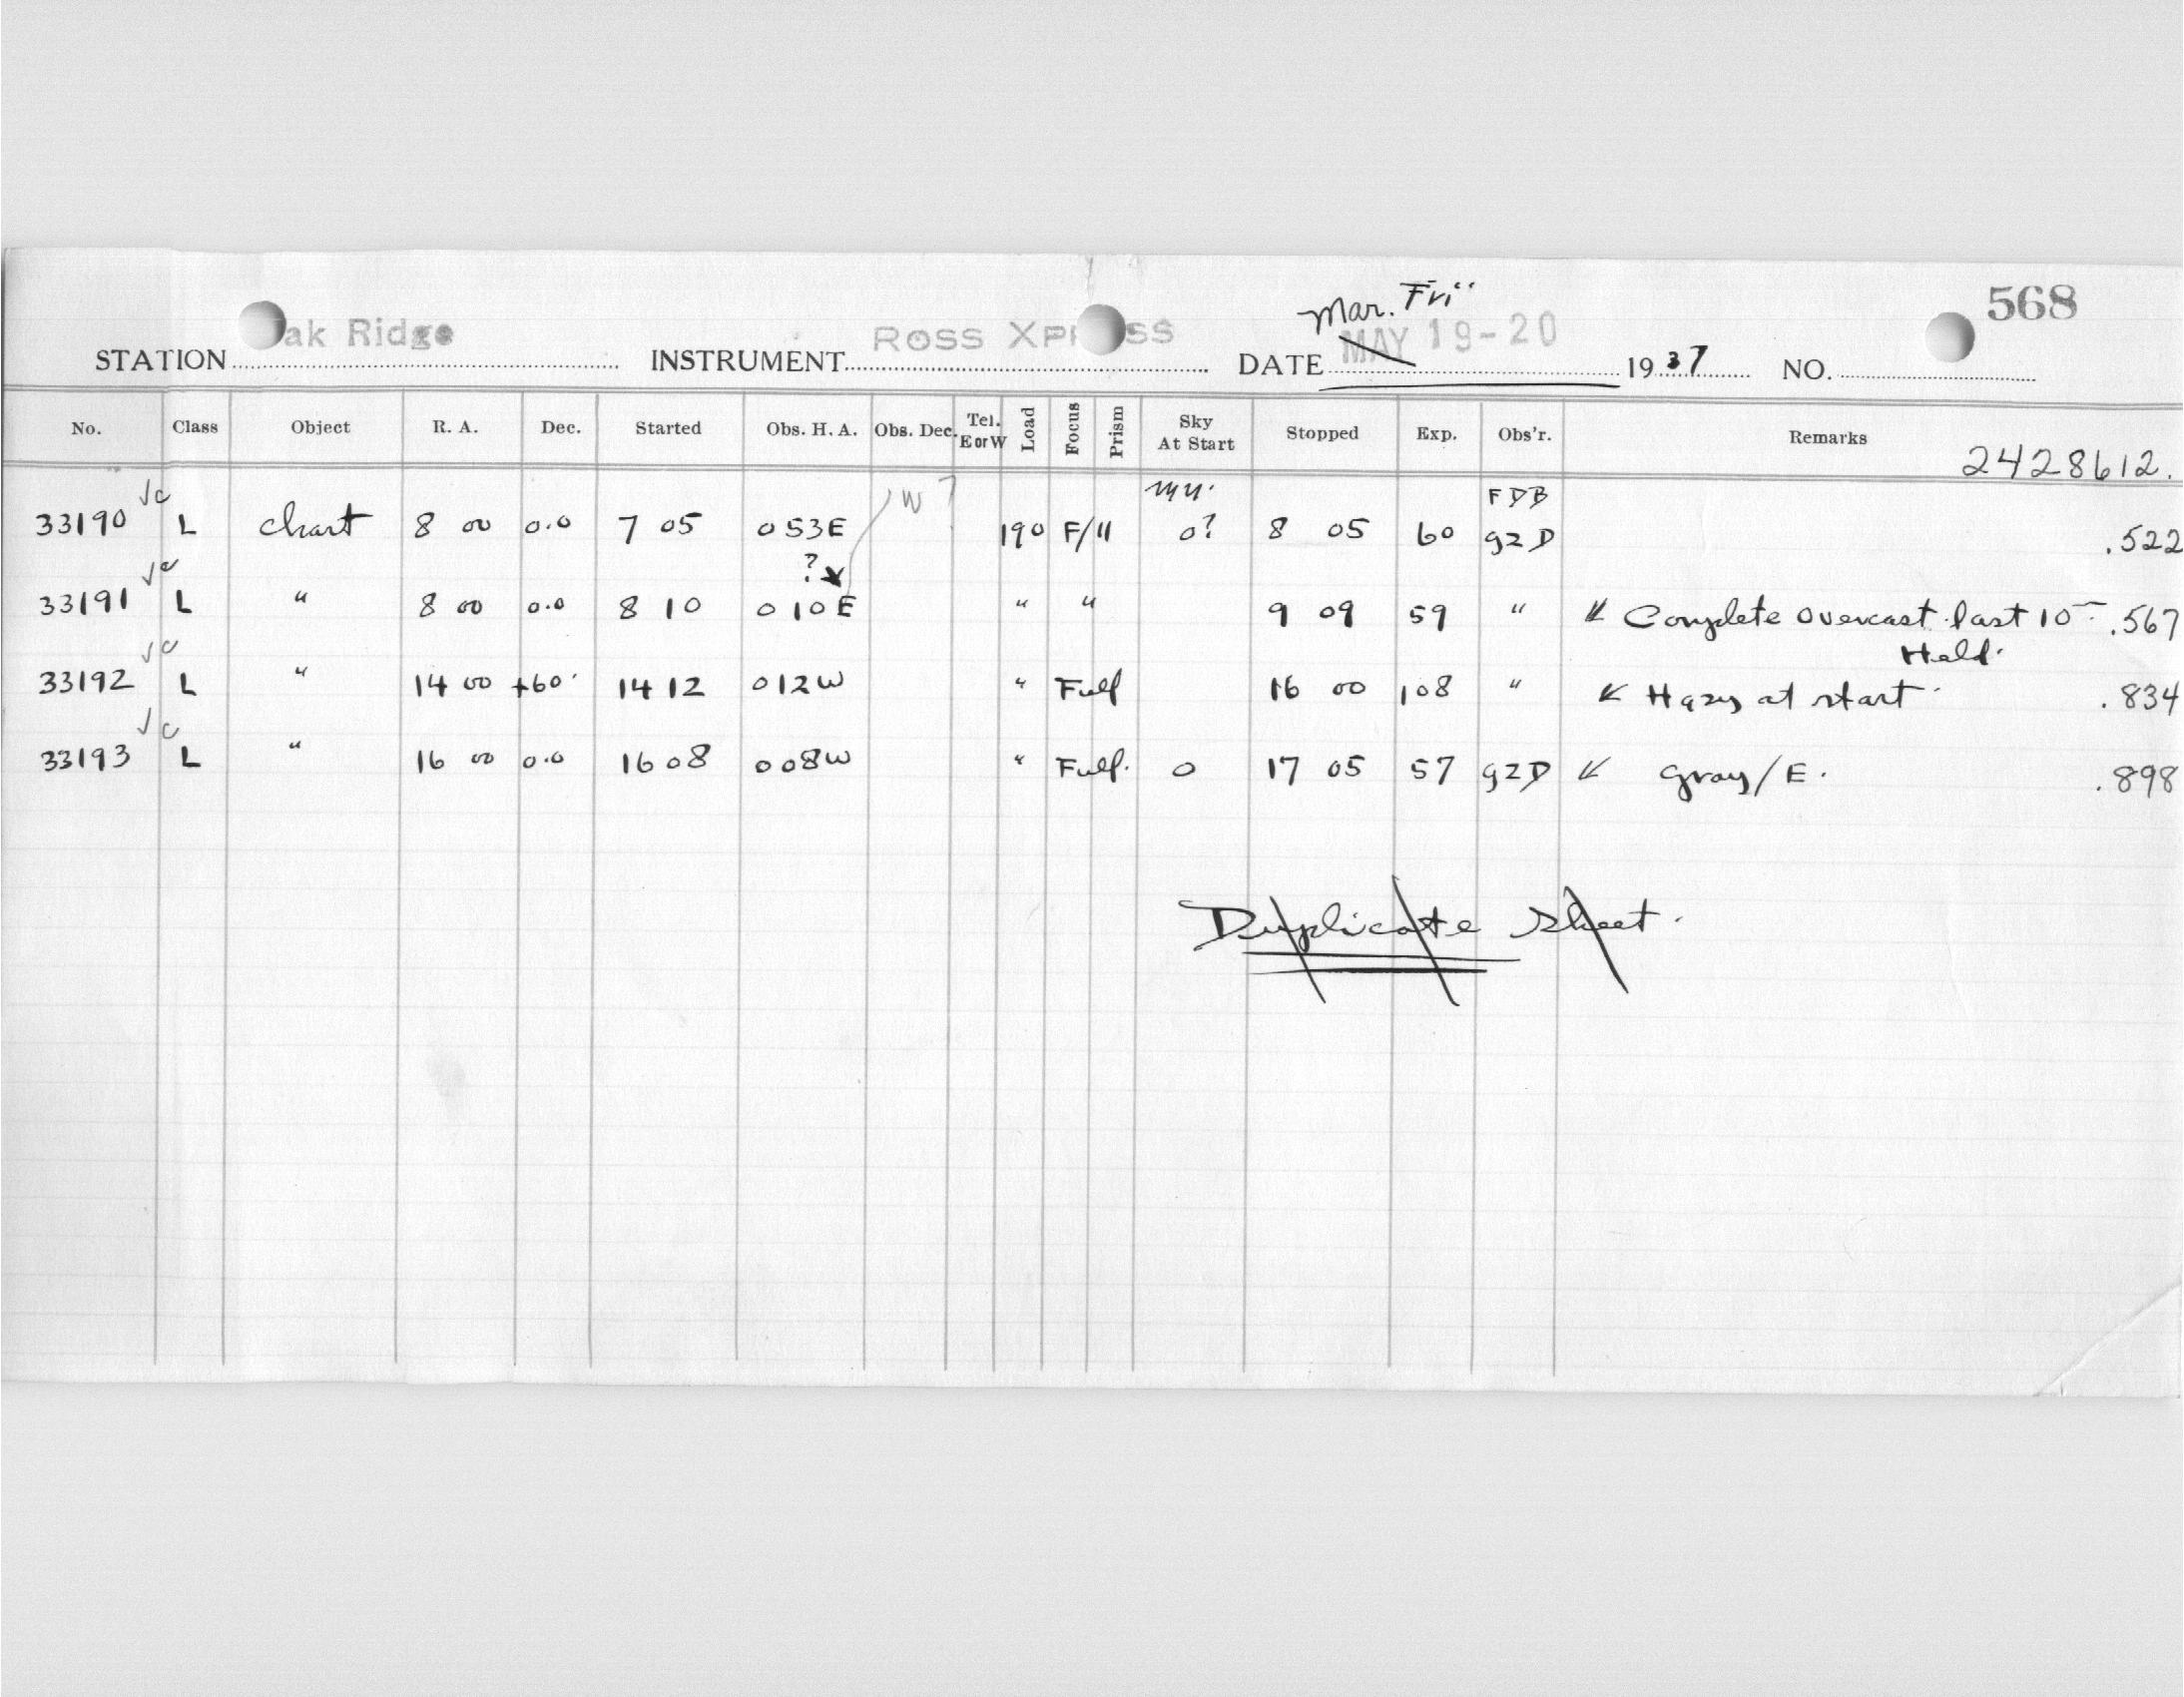 568
Mar. Fri"
STATION ak Ridge INSTRUMENT Ross XP ss DATE MAY 19-20 1937 NO.
No. Class Object R. A. Dec. Started Obs. H. A. Obs. Dec. Tel. E or W Load Focus Prism Sky At Start Stopped Exp. Obs'r. Remarks
2428612.
√c W? FDB
33190 L chart 8 00 0.0 7 05 0 53E 190 F/11 0? 8 05 60 gzD .522
√c ?
33191 L " 8 00 0.0 8 10 0 10E " " 9 09 59 " Complete overcast last 10 .567
Held.
√c
33192 L " 14 00 +60 14 12 0 12W " Full 16 00 108 " Hazy at start .834
√c
33193 L " 16 00 0.0 16 08 0 08W " Full. 0 17 05 57 gzD gray/E. .898
Duplicate Sheet.